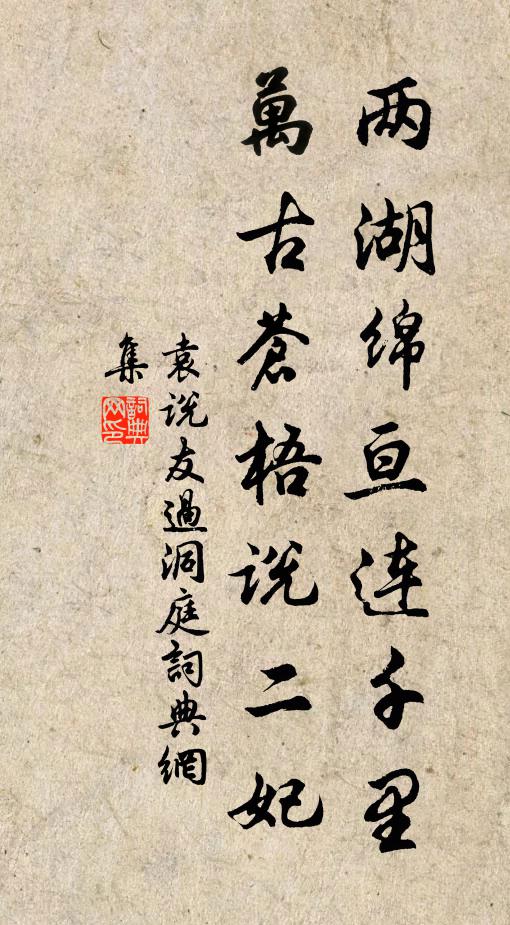 两湖绵亘连千里
萬古蒼梧说二妃
袁说友過洞庭詞典網
集
詞典網印